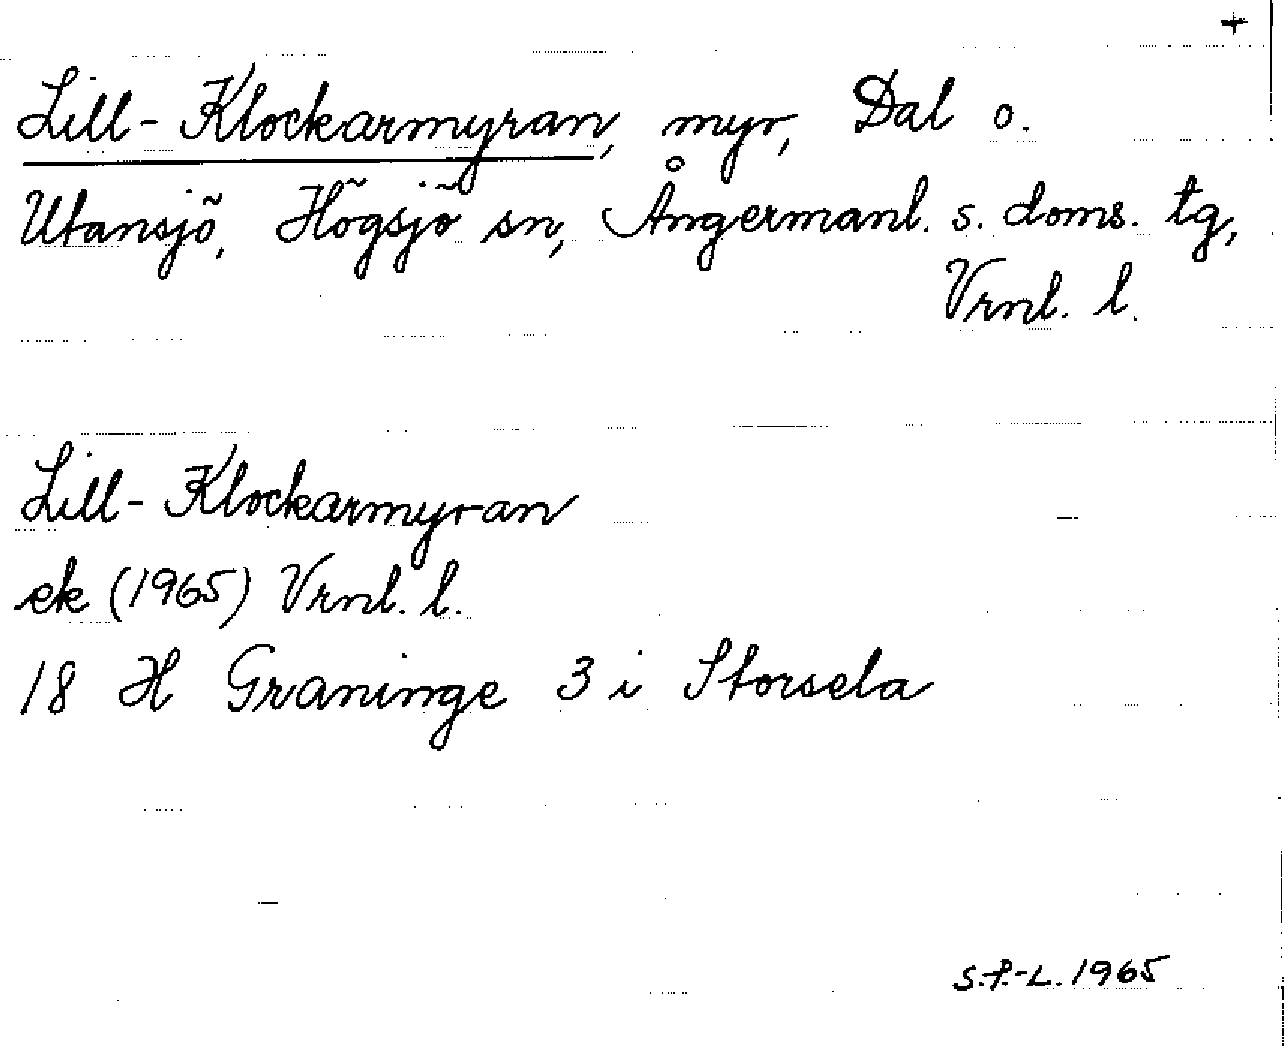 +
Lill-Klockarmyran, myr, Dal o.
Utansjö, Högsjö sn, Ångermanl. s. doms. tg,
Vrnl. l.
Lill-Klockarmyran
ek (1965) Vrnl. l.
18 H Graninge 3 i Storsela
S.P.-L. 1965